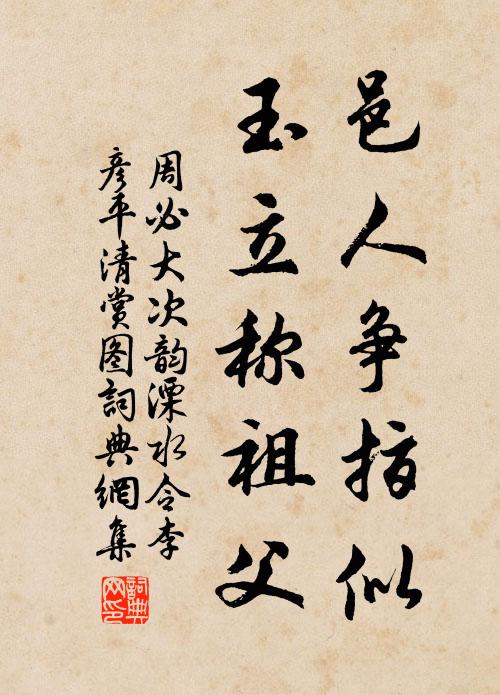 邑人争指似
玉立称祖父
周必大次韵溧水令李
彦平清赏图詞典網集
詞典